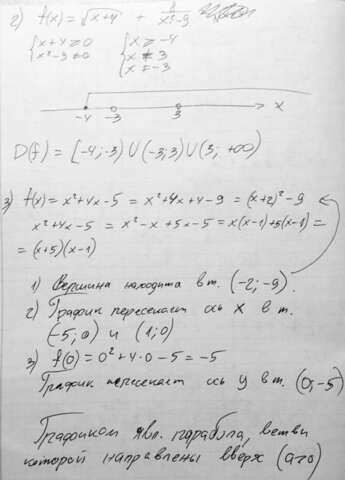 2) f(x) = √x+4 + 8/x²-9
{ x+4 ≥ 0 { x ≥ -4
x²-9 ≠ 0 x ≠ 3
x ≠ -3
-4 -3 3 x
D(f) = [-4;-3) ∪ (-3;3) ∪ (3; +∞)
3) f(x) = x²+4x-5 = x²+4x+4-9 = (x+2)²-9
x²+4x-5 = x²-x+5x-5 = x(x-1)+5(x-1) =
= (x+5)(x-1)
1) Вершина находится в т. (-2;-9).
2) График пересекает ось X в т.
(-5; 0) и (1; 0)
3) f(0) = 0²+4·0-5 = -5
График пересекает ось y в т. (0;-5)
Графиком явл. парабола, ветви
которой направлены вверх (a>0)